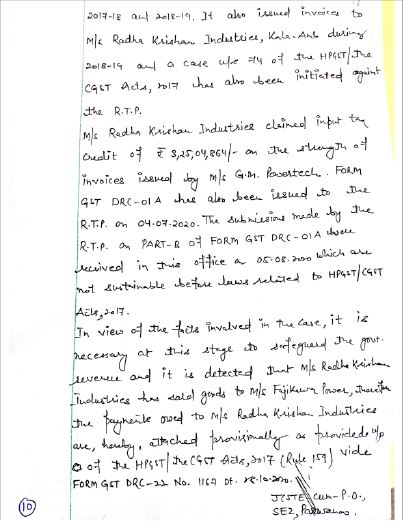 2017-18 and 2018-19. It also issued invoices to
M/s Radha Krishan Industries, Kala-Amb during
2018-19 and a case u/s 74 of the HPGST/the
CGST Acts, 2017 has also been initiated against
the R.T.P.
M/s Radha Krishan Industries claimed input tax
credit of ₹ 3,25,04,864/- on the strength of
invoices issued by M/s G.M. Powertech. FORM
GST DRC-01A has also been issued to the
R.T.P. on 04.07.2020. The submissions made by the
R.T.P. on PART-B of FORM GST DRC-01A were
received in this office on 05.08.2020 which are
not sustainable before laws related to HPGST/CGST
Acts, 2017.
In view of the facts involved in the case, it is
necessary at this stage to safeguard the govt.
revenue and it is detected that M/s Radha Krishan
Industries has sold goods to M/s Fujikawa Power, therefore
the payments owed to M/s Radha Krishan Industries
are, hereby, attached provisionally as provided u/s
of the HPGST/the CGST Acts, 2017 (Rule 159) vide
FORM GST DRC-22 No. 1162 Dt. 28.10.2020.
JCSTE cum-P.O.,
SEZ, Parwanoo.
10